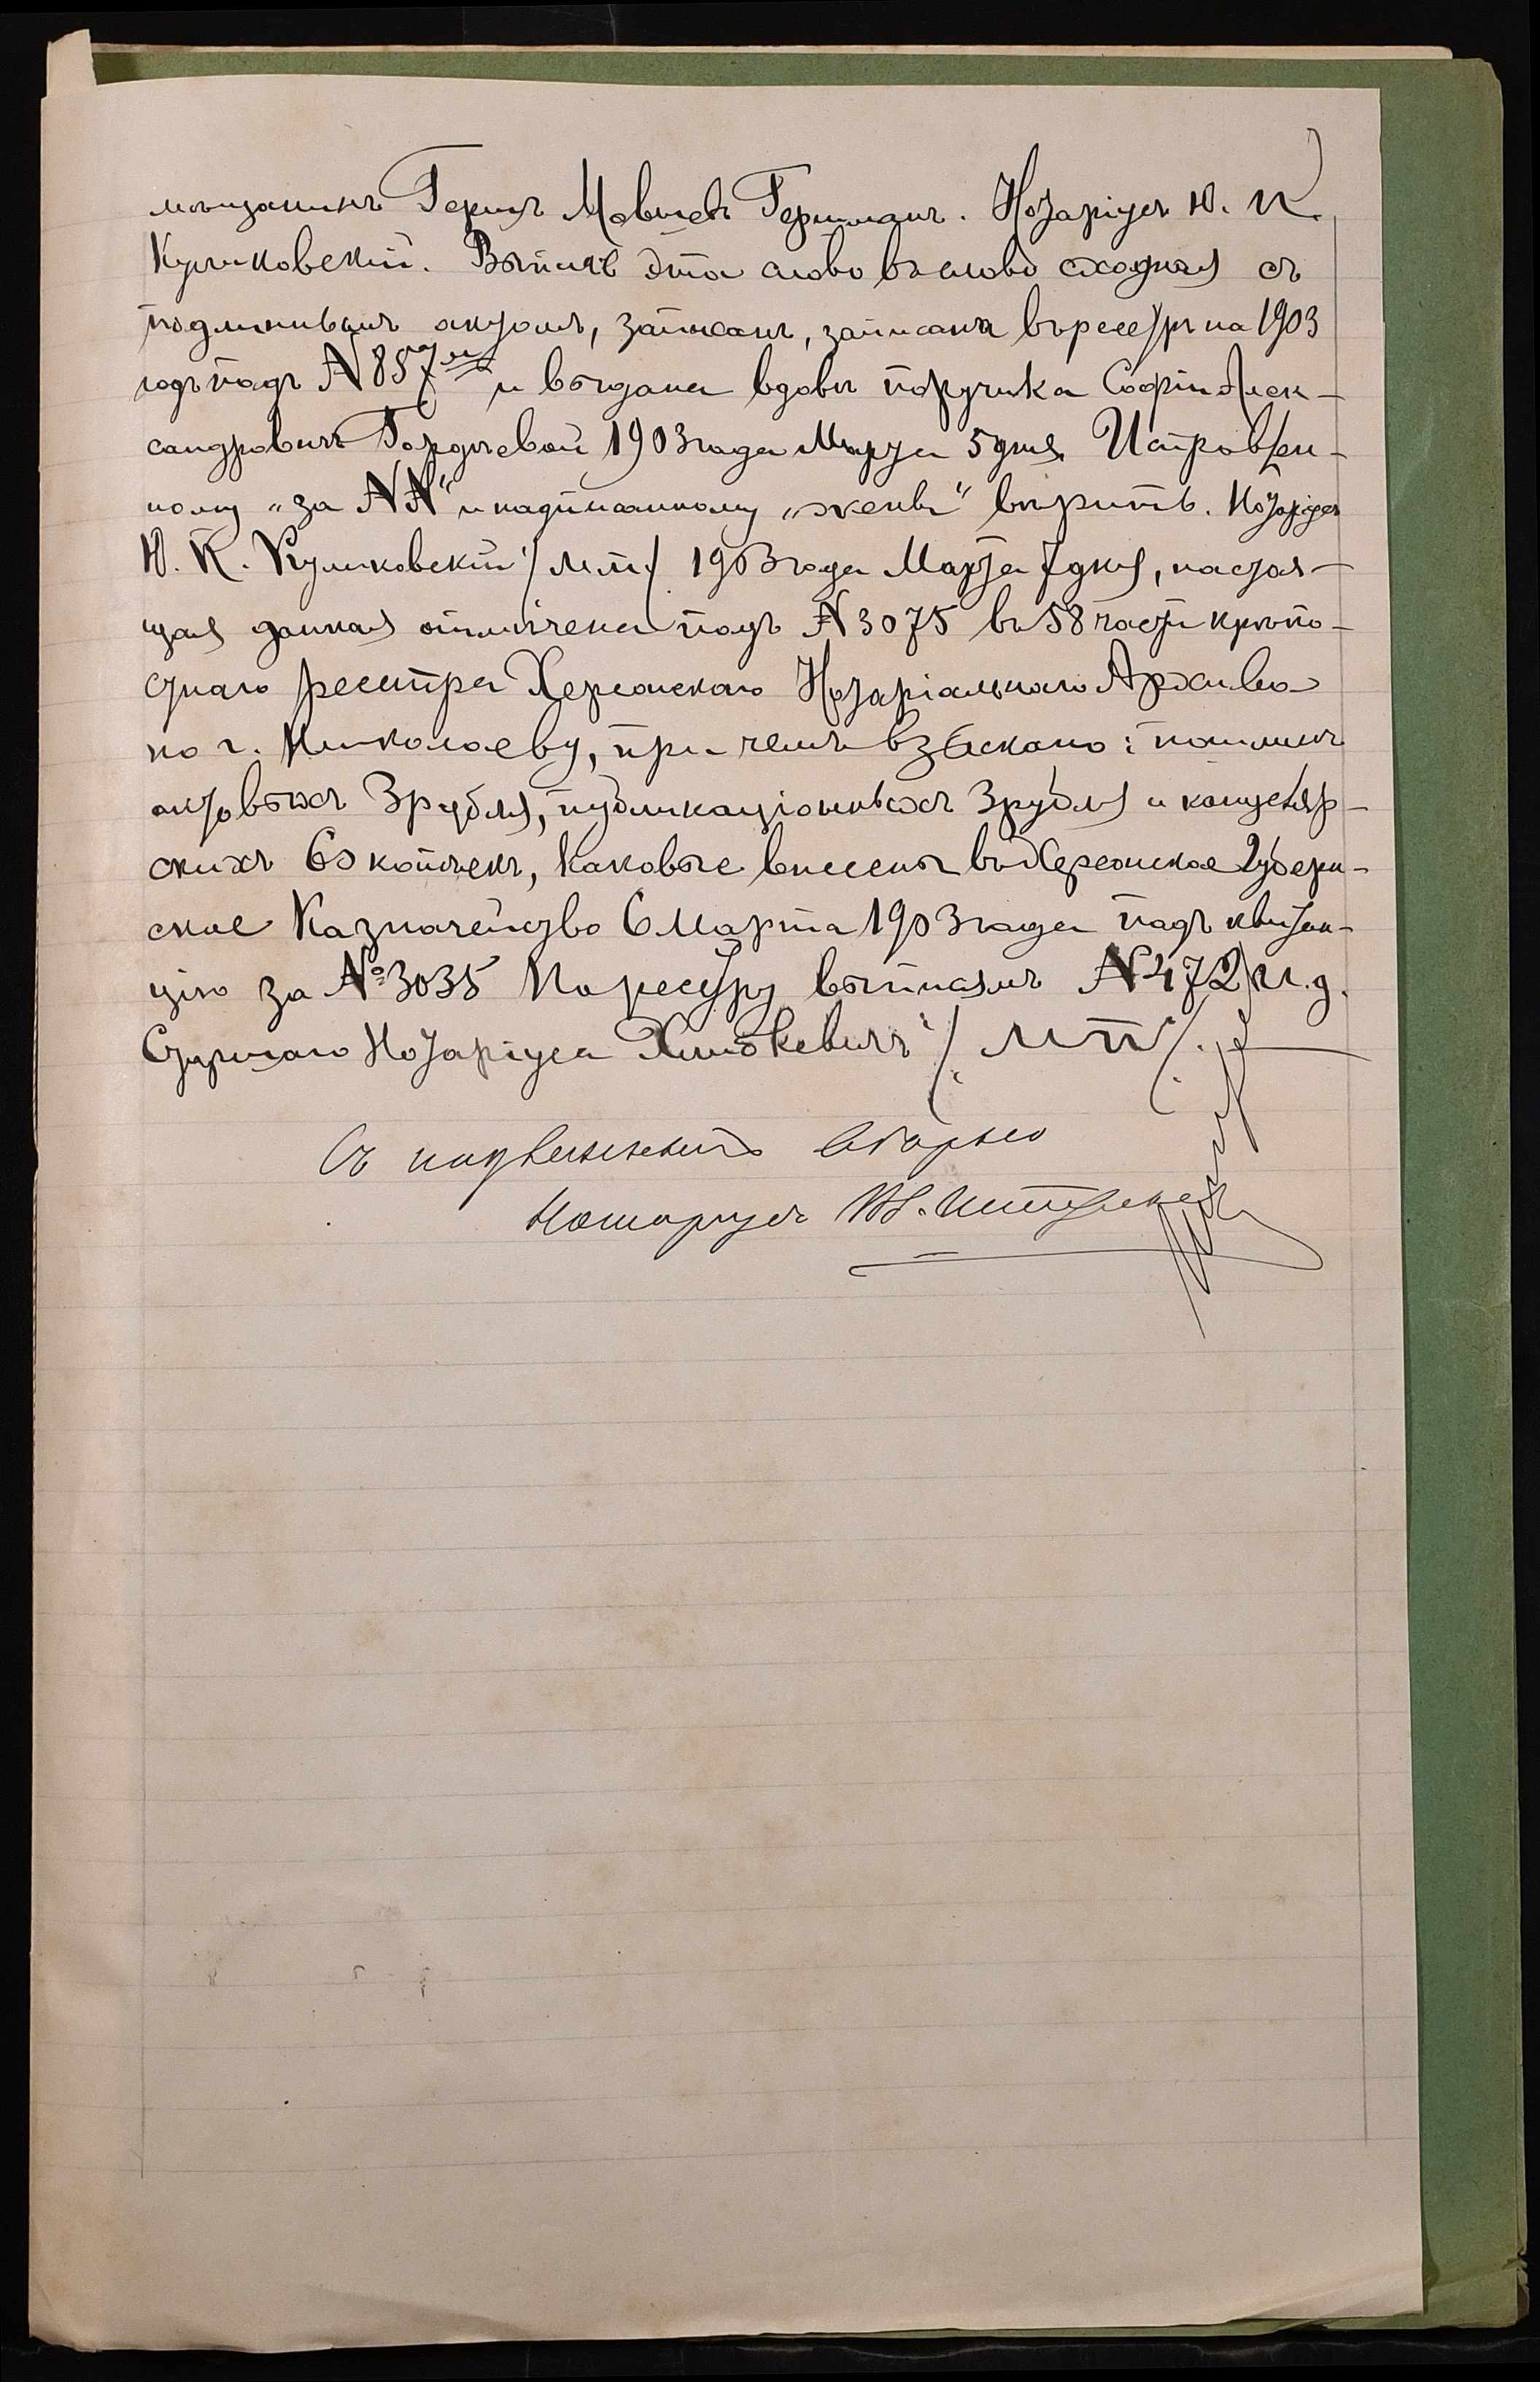 мѣщанинъ Гершъ Мовшевъ Гершманъ. Нотаріусъ Ю. К.
Куликовскій. Выпись эта слово въ слово сходная съ
подлиннымъ актомъ, записанъ, записана въ реестръ на 1903
годъ подъ № 857 и выдана вдовѣ поручика Софіи Алек-
сандровнѣ Гордѣевой 1903 года Марта 5 дня. Исправлен-
ному „за №№" и надписанному „жены" вѣрить. Нотаріусъ
Ю. К. Куликовскій /М.П./ 1903 года Марта 7 дня, настоя-
щая данная отмѣчена подъ № 3075 въ 58 части крѣпо-
стнаго реестра Херсонскаго Нотаріальнаго Архива
по г. Николаеву, при чемъ взыскано: пошлинъ
актовыхъ 3 рубля, публикаціонныхъ 3 рубля и канцеляр-
скихъ 60 копѣекъ, каковые внесены въ Херсонское Губерн-
ское Казначейство 6 Марта 1903 года подъ квитан-
цію за № 3035 По реестру выписямъ № 472 И.д.
Старшаго Нотаріуса /МП/.
Съ подлиннымъ вѣрно
Нотаріусъ